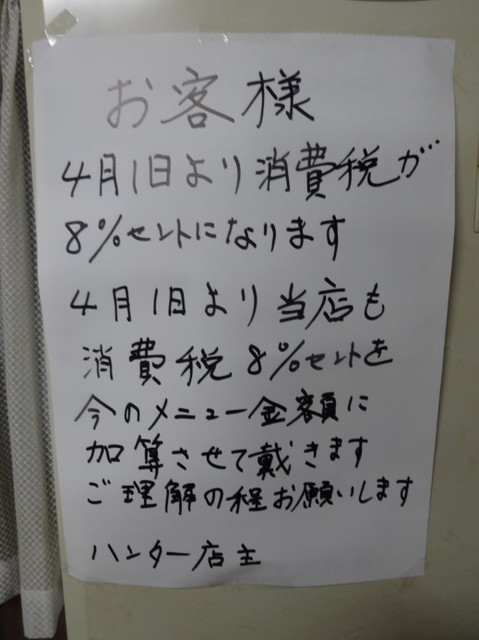 お客様
4月1日より消費税が
8%セントになります
4月1日より当店も
消費税8%セントを
今のメニュー金額に
加算させて戴きます
ご理解の程お願いします
ハンター店主